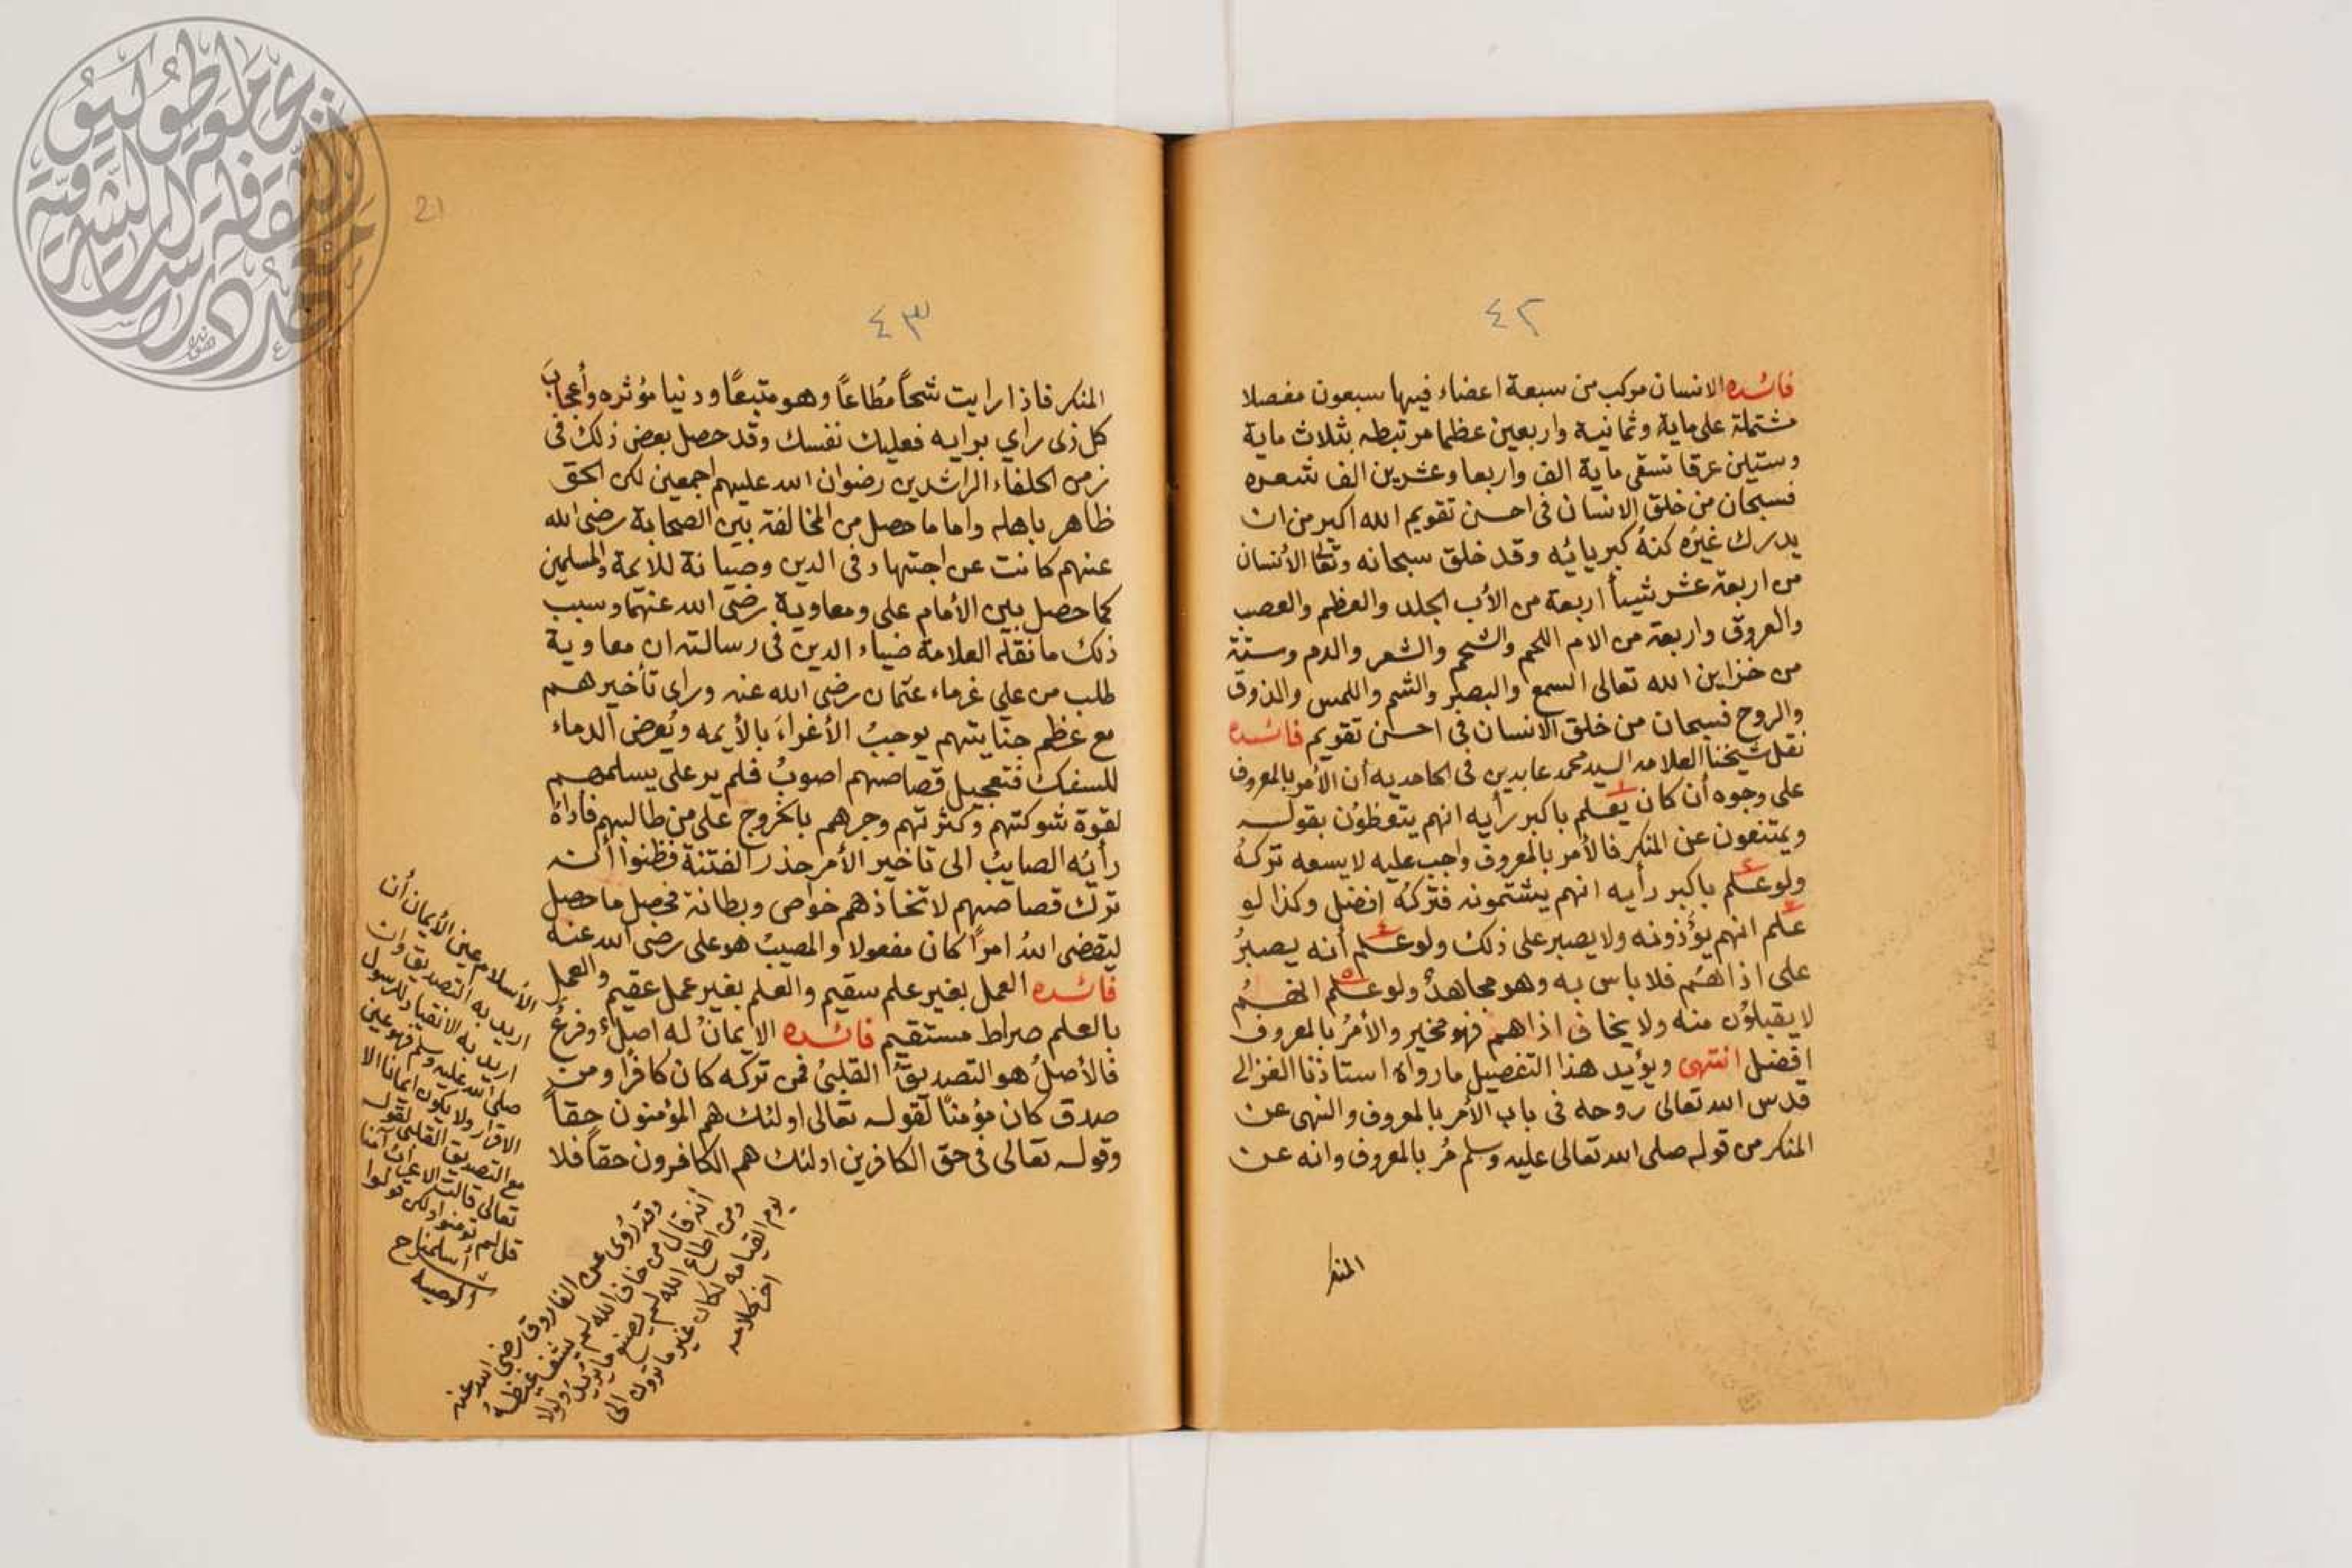 ٤٢
فائده الانسان مركب من سبعة اعضاء فيها سبعون مفصلا
مشتملة على ماية وثمانية واربعين عظما مرتبطه بثلاث ماية
وستين عرقا تسقى ماية الف واربعا وعشرين الف شعره
فسبحان من خلق الانسان فى احسن تقويم الله اكبر من ان
يدرك غيره كنه كبريائه وقد خلق سبحانه وتعالى الأنسان
من اربعة عشر شيئاً اربعة من الأب الجلد والعظم والعصب
والعروق واربعة من الام اللحم والشحم والشعر والدم وستة
من خزاين الله تعالى السمع والبصر والشم واللمس والذوق
والروح فسبحان من خلق الانسان فى احسن تقويم فائده
نقل شيخنا العلامه السيد محمد عابدين فى الحامديه أن الأمر بالمعروف
على وجوه أن كان يعلم باكبر رأيه انهم يتعظون بقوله
ويمتنعون عن المنكر فالأمر بالمعروف واجب عليه لا يسعه تركهُ
ولو علم باكبر رأيه انهم يشتمونه فتركهُ افضل وكذا لو
علم انهم يؤذونه ولا يصبر على ذلك ولو علم أنه يصبرُ
على اذاهُم فلا باس به وهو مجاهدٌ ولو علم انهُم
لا يقبلوُن منه ولا يخاف اذاهم فهو مخير والأمرُ بالمعروف
افضل انتهى ويؤيد هذا التفصيل ما رواه استاذنا الغزالى
قدس الله تعالى روحه فى باب الأمر بالمعروف والنهى عن
المنكر من قوله صلى الله تعالى عليه وسلم مُر بالمعروف وانه عن
المنكر
21
٤٣
المنكر فاذا رايت شحاً مُطاعاً وهو متبعاً ودنيا مؤثره وأعجابَ
كل ذى راي برايه فعليك نفسك وقد حصل بعض ذلك فى
زمن الخلفاء الراشدين رضوان الله عليهم اجمعين لكن الحق
ظاهر باهله واما ما حصل من المخالفة بين الصحابة رضى الله
عنهم كانت عن اجتهاد فى الدين وصيانة للأئمة والمسلمين
كما حصل بين الأمام على ومعاوية رضى الله عنهما وسبب
ذلك ما نقله العلامة ضياء الدين فى رسالته ان معاوية
طلب من علي غرماء عثمان رضى الله عنه وراى تأخيرهم
مع عظم جنايتهم يوجبُ الأغراءَ بالأيمه ويُعرض الدماء
للسفك فتعجيل قصاصهم اصوبُ فلم ير على يسلمهم
لقوة شوكتهم وكثرتهم وجرهم بالخروج على من طالبهم فأداهُ
رأيُه الصايبُ الى تاخير الأمر حذر الفتنة فظنوا أنه
ترك قصاصهم لاتخاذهم خواص وبطانة فحصل ما حصل
ليقضى اللهُ امراً كان مفعولا والمصيبُ هو على رضى الله عنه
فائده العمل بغير علم سقيم والعلم بغير عمل عقيم والعمل
بالعلم صراط مستقيم فائده الايمانُ له اصلٌ وفرعٌ
فالأصلُ هو التصديقُ القلبىُ فمن تركه كان كافراً ومن
صدق كان مؤمناً لقوله تعالى اولئك هم المؤمنون حقاً
وقوله تعالى فى حق الكافرين اولئك هم الكافرون حقاً فلا
الأسلام عين الأيمان أن
اريد به التصديق وان
اريد به الانقياد للرسول
صلى الله عليه وسلم فهو عين
الاقرار ولا يكون ايمانا الا
مع التصديق القلبى لقوله
تعالى قالت الاعراب آمنا
قل لم تومنوا ولكن قولوا
أسلمنا
وقد رُوى عن الفاروق رضى الله عنه
أنه قال من خاف الله لم يشف غيظهُ
ومن اطاع الله لم يصنع ما يريد ولولا
يوم القيامه لكان غير ما ترون الى
اخر كلامه